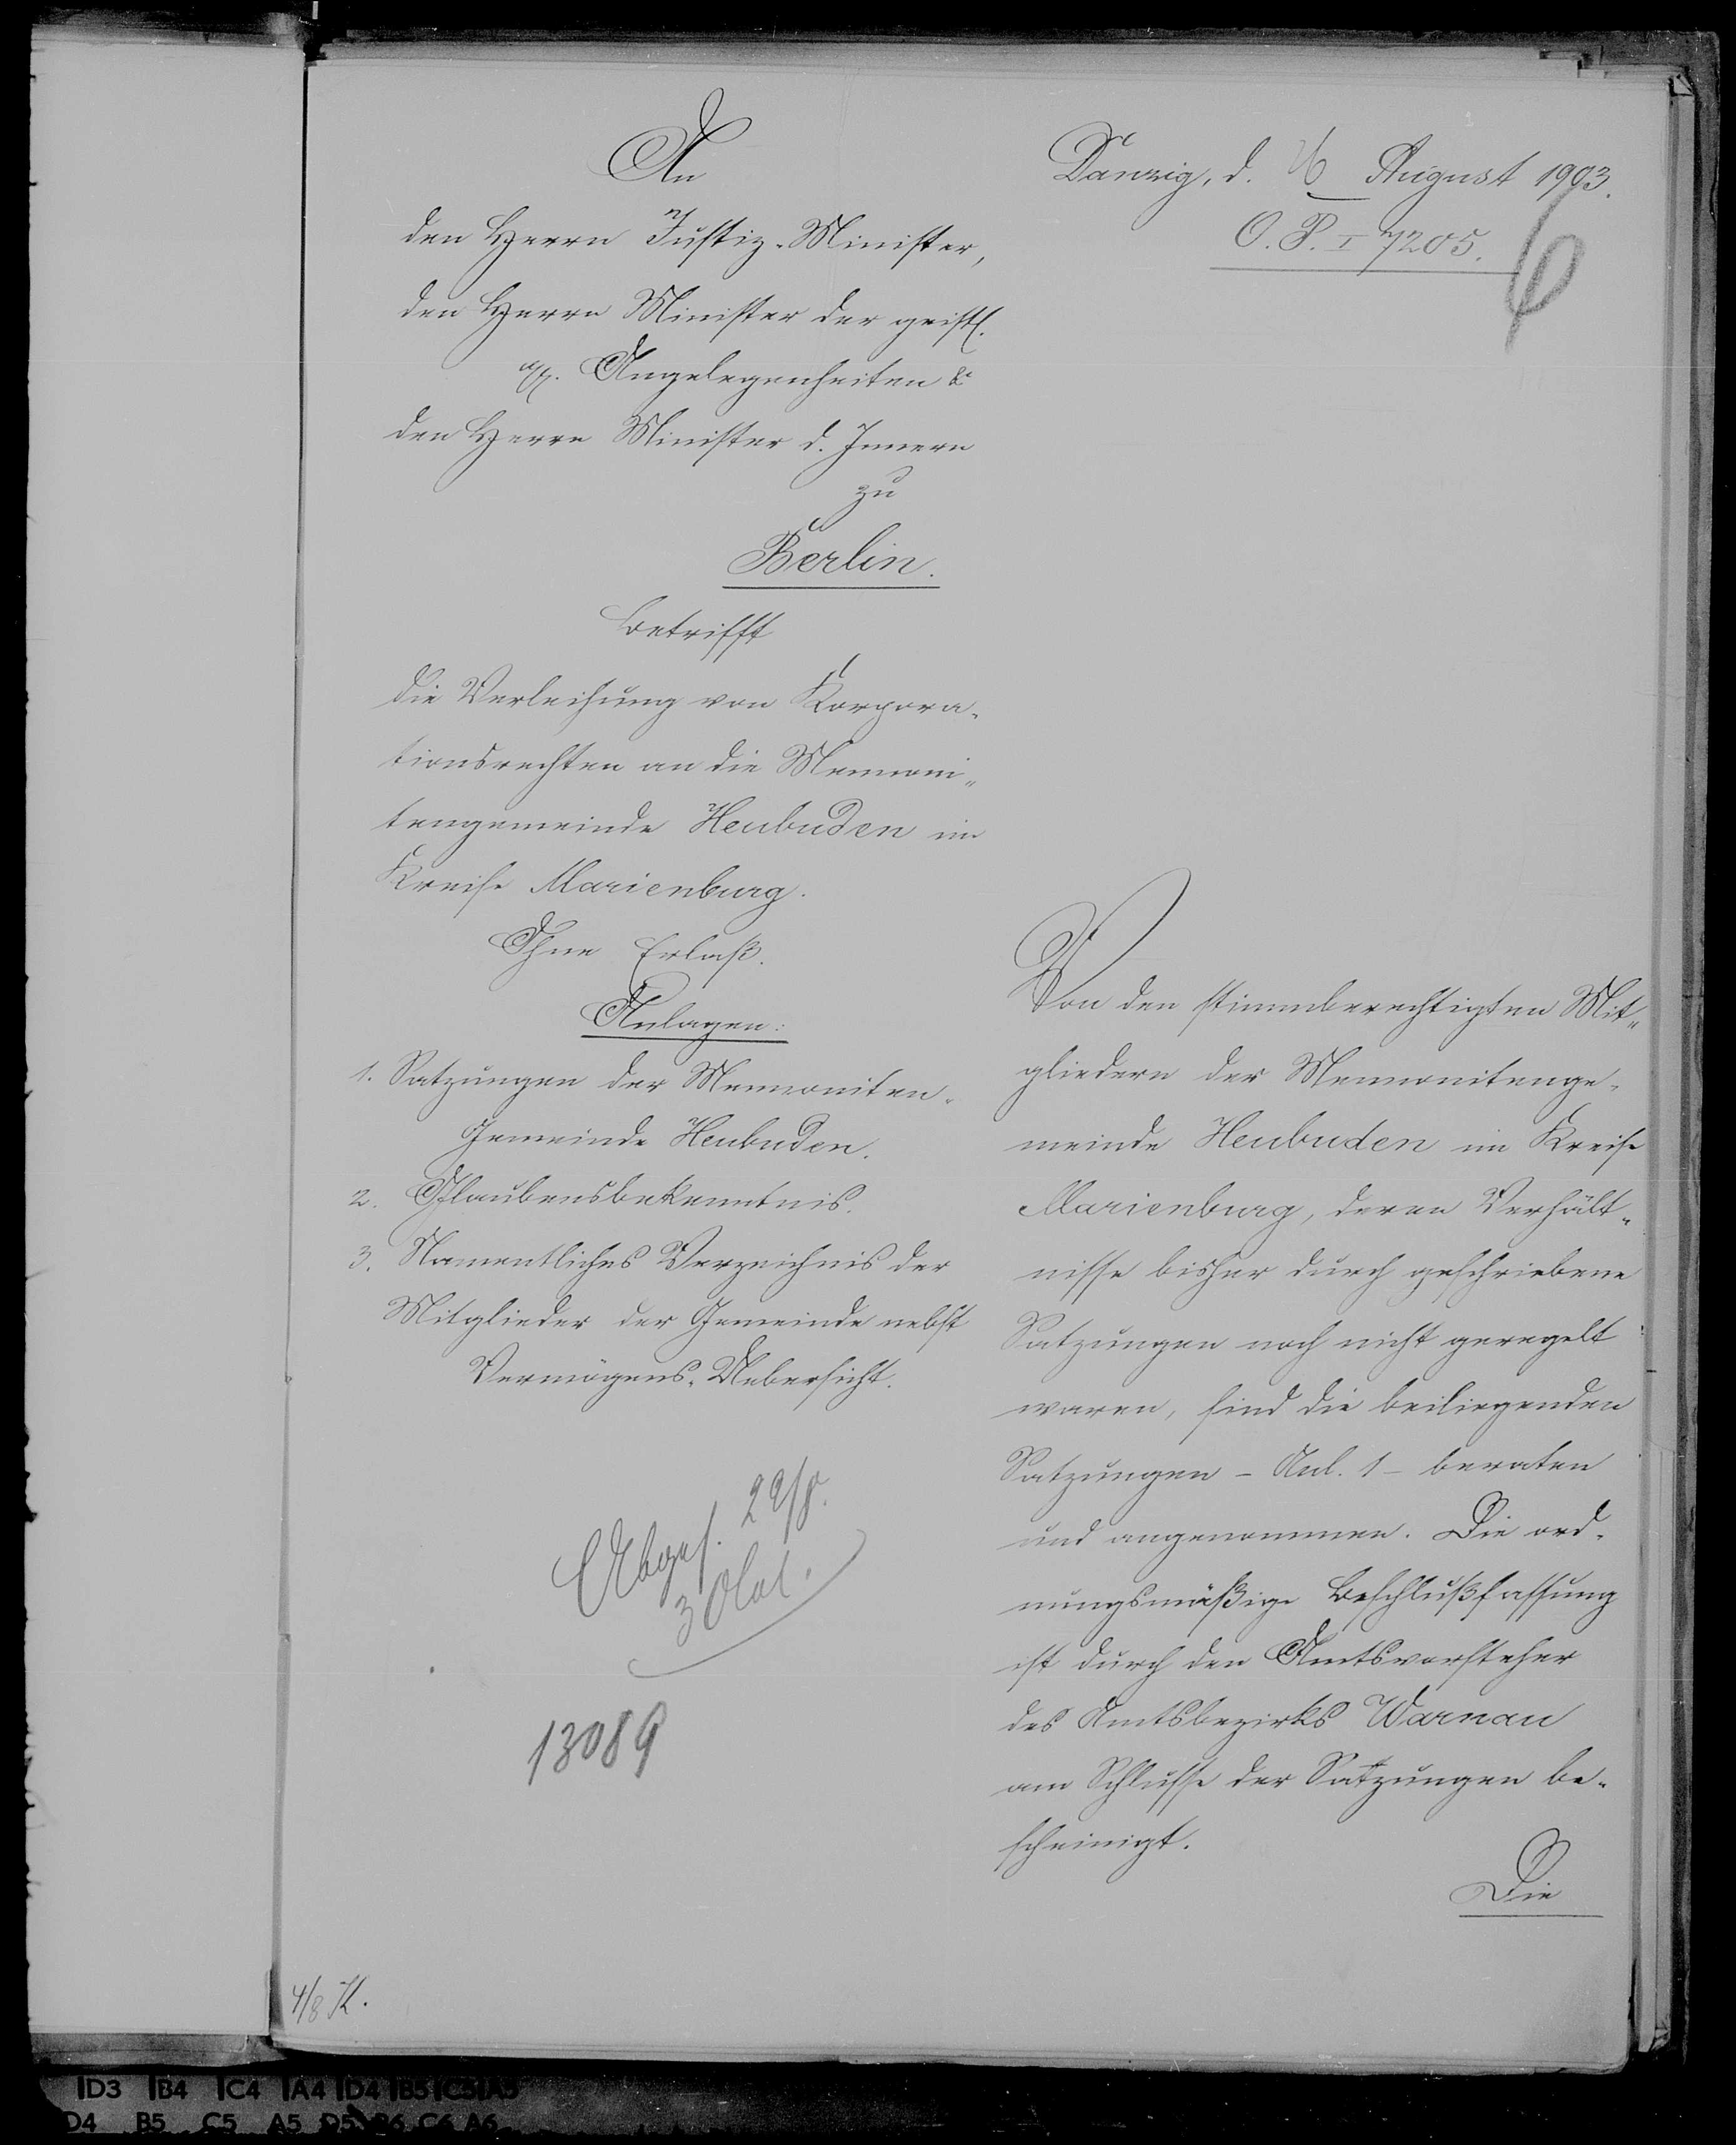 An
den Herrn Justiz-Minister,
den Herrn Minister der geistl.
pp. Angelegenheiten &
den Herrn Minister d. Innern
zu
Berlin.
Betrifft
die Verleihung von Korpora-
tionsrechten an die Mennoni-
tengemeinde Heubuden im
Kreise Marienburg.
Ohne Erlaß.
Anlagen:
1. Satzungen der Mennoniten-
Gemeinde Heubuden.
2. Glaubensbekenntnis.
3. Namentliches Verzeichnis der
Mitglieder der Gemeinde nebst
Vermögens-Uebersicht.
Abges. 22/8.
13089
4/8 K.
Danzig, d. August 1903.
O. P. I 7205.
6
Von den stimmberechtigten Mit-
gliedern der Mennonitenge-
meinde Heubuden im Kreise
Marienburg, deren Verhält-
nisse bisher durch geschriebene
Satzungen noch nicht geregelt
waren, sind die beiliegenden
Satzungen - Anl. 1 - beraten
und angenommen. Die ord-
nungsmäßige Beschlußfassung
ist durch den Amtsvorsteher
des Amtsbezirks Warnau
am Schlusse der Satzungen be-
scheinigt.
Die
D3 B4 C4 A4 D4 B5 C5 A5
D4 B5 C5 A5 D5 B6 C6 A6